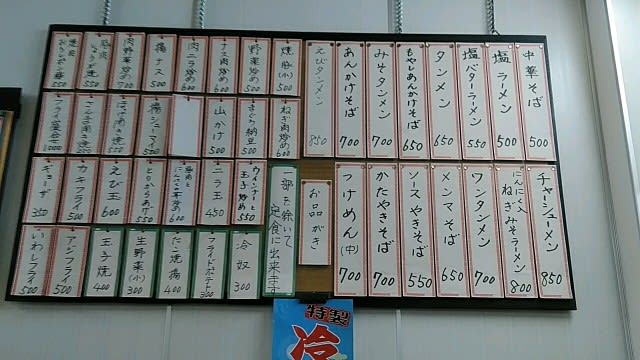 中華そば 500
塩ラーメン 500
塩バターラーメン 550
タンメン 650
もやしあんかけそば 650
みそタンメン 700
あんかけそば 700
えびタンメン 850
焼豚(小) 500
野菜炒め 500
ナス肉炒め 600
肉ニラ炒め 600
揚ナス 500
肉野菜炒め 700
ねぎ肉炒め 600
まぐろ納豆 500
山かけ 500
揚シューマイ 500
チャーシューメン 850
にんにく入ねぎみそラーメン 800
ワンタンメン 700
メンマそば 650
ソースやきそば 550
かたやきそば 700
つけめん(中) 700
お品がき
一部を除いて定食に出来ます
ウインナーと玉子炒め 550
ニラ玉 450
豚肉とにんにく芽炒め 600
とりからあげ 550
えび玉 600
カキフライ 500
ギョーザ 350
冷奴 300
フライドポテト 300
たこ焼揚 400
生野菜(小) 300
玉子焼 400
アジフライ 500
いわしフライ 500
特製
冷